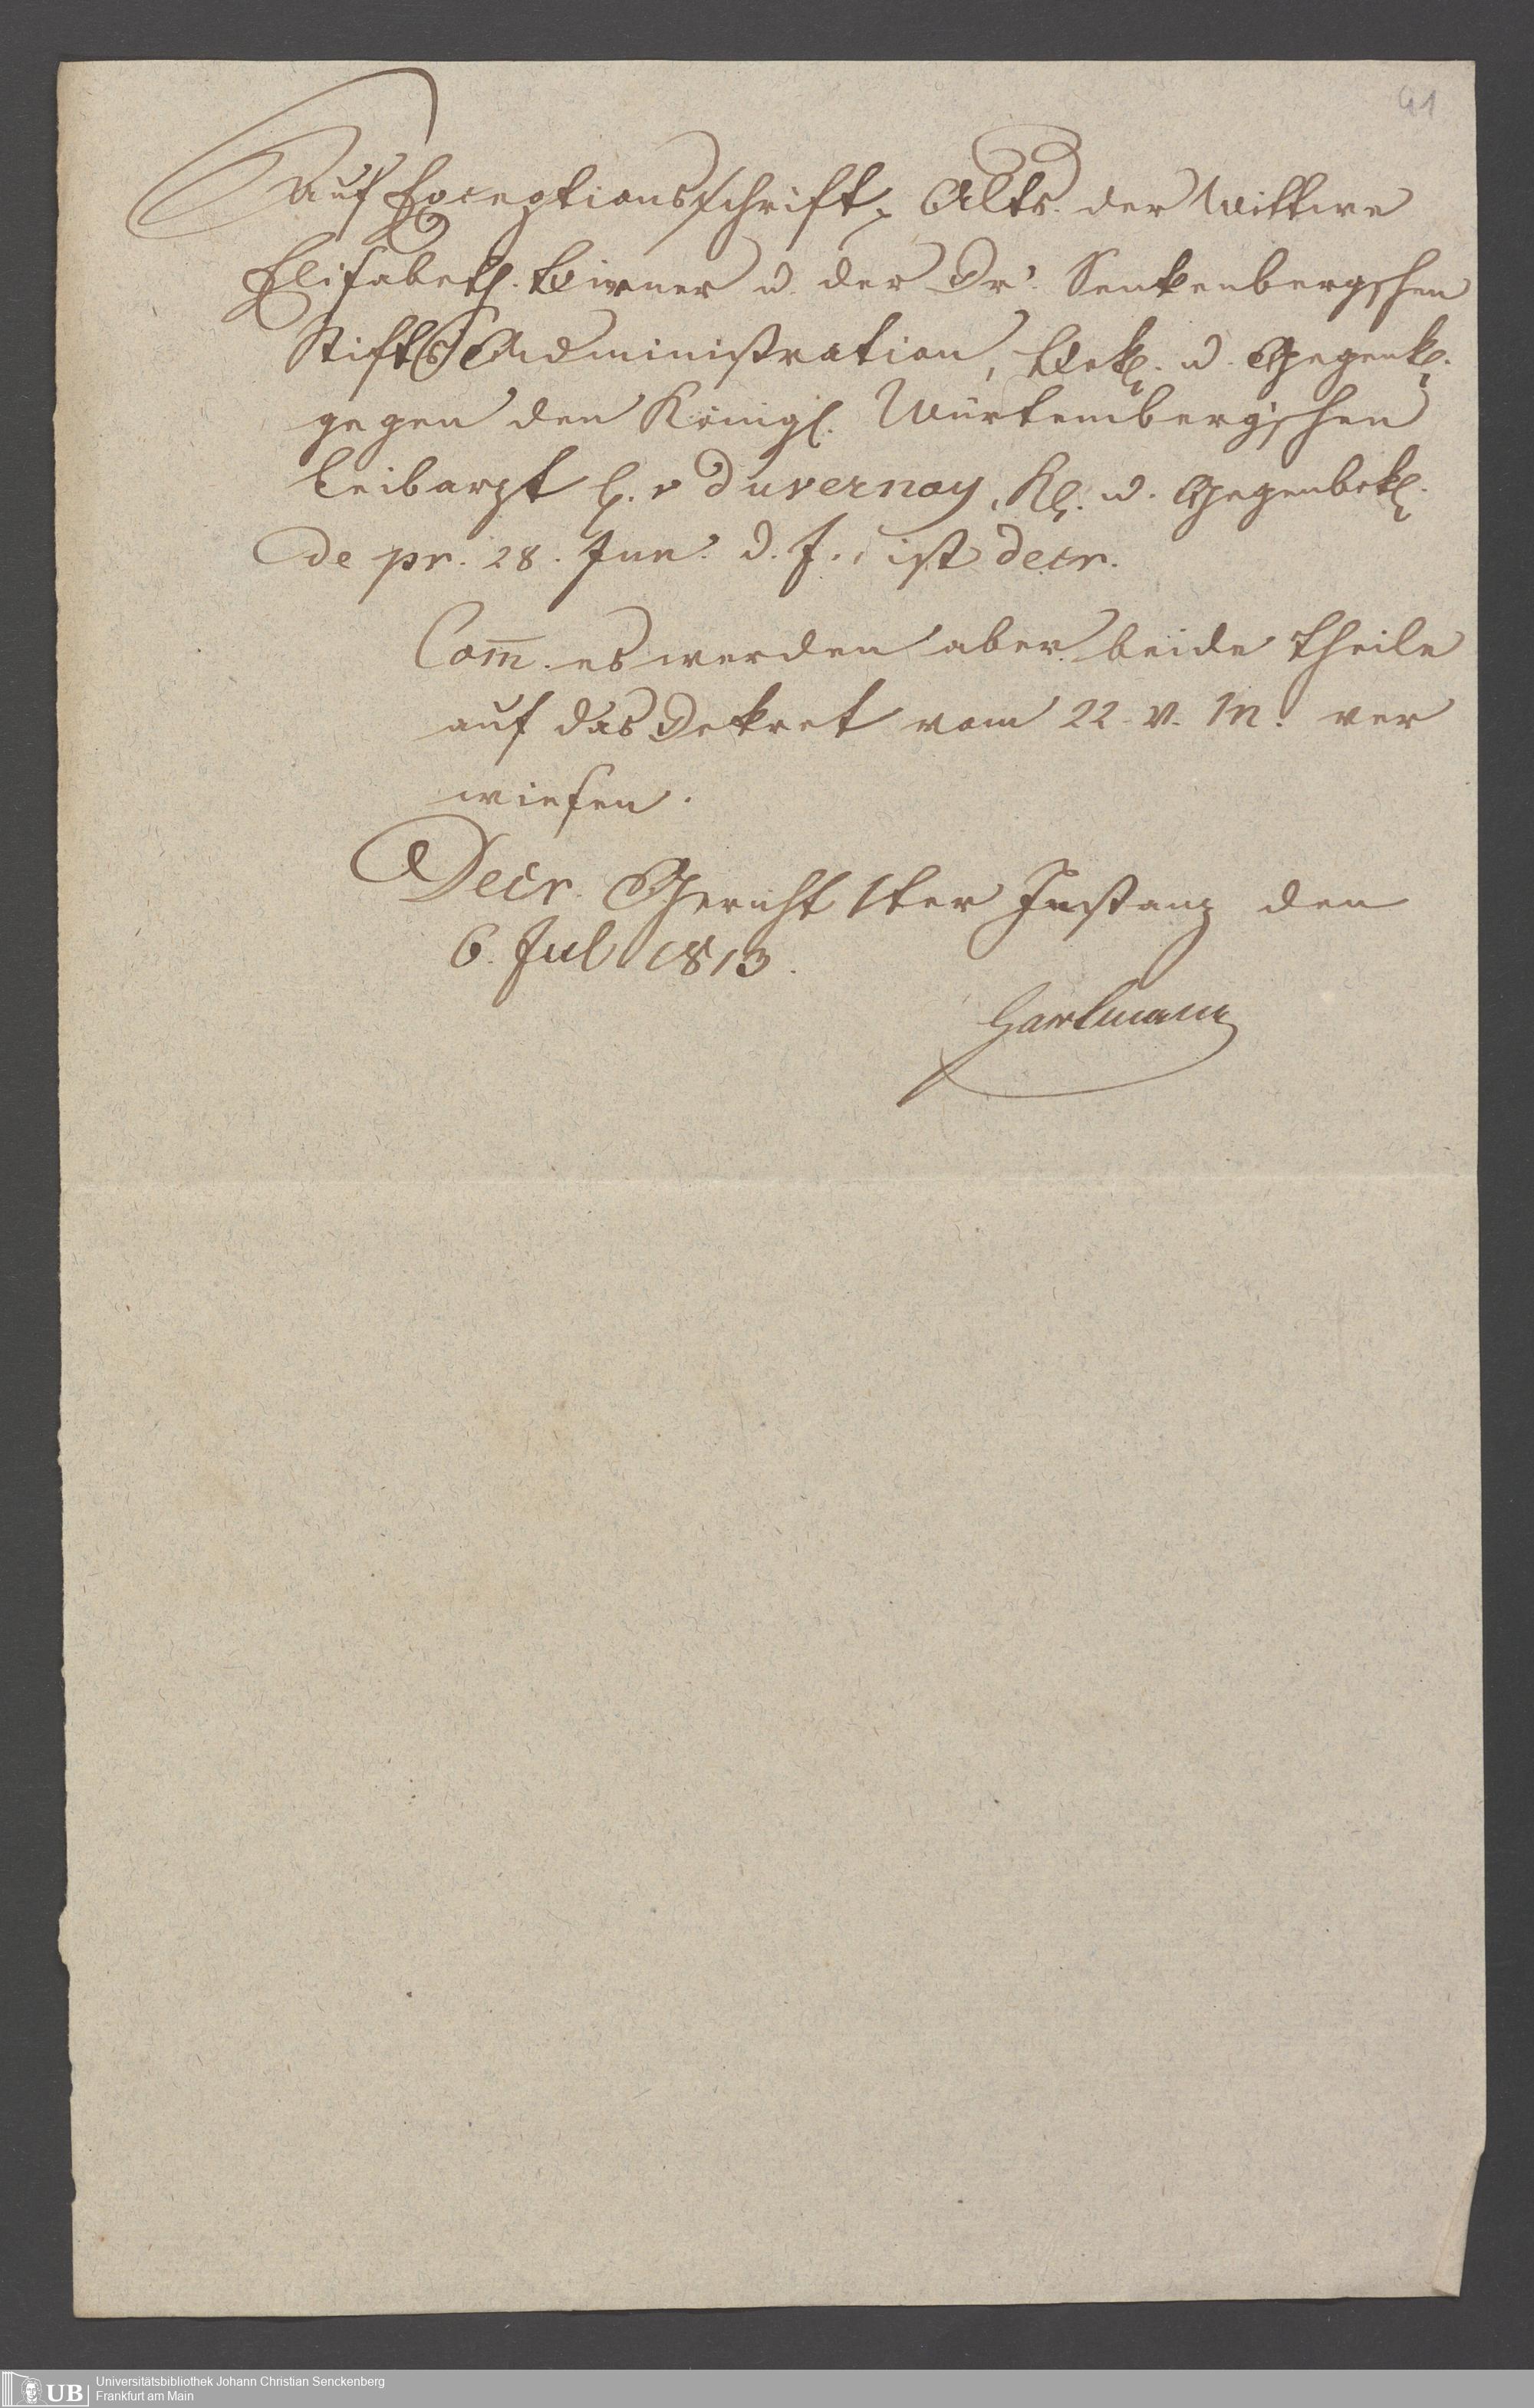 41
Auf Exceptionsschrift, Altr. der Wittwe
Elisabeth. Birner u. der Dr. Senkenbergschen
Stifts Administration, Bekl. u. Gegenkl.
gegen den Königl. Würtembergschen
Leibarzt H. v Duvernoy, Kl. u. Gegenbekl.
de pr. 28. Jun. d. J., ist decr.
Com̅. es werden aber beide Theile
auf das Dekret vom 22. v. M. ver
wiesen.
Decr. Gericht 1ter Instanz den
6. Jul. 1813.
Hartmann
UB
Universitätsbibliothek Johann Christian Senckenberg
Frankfurt am Main